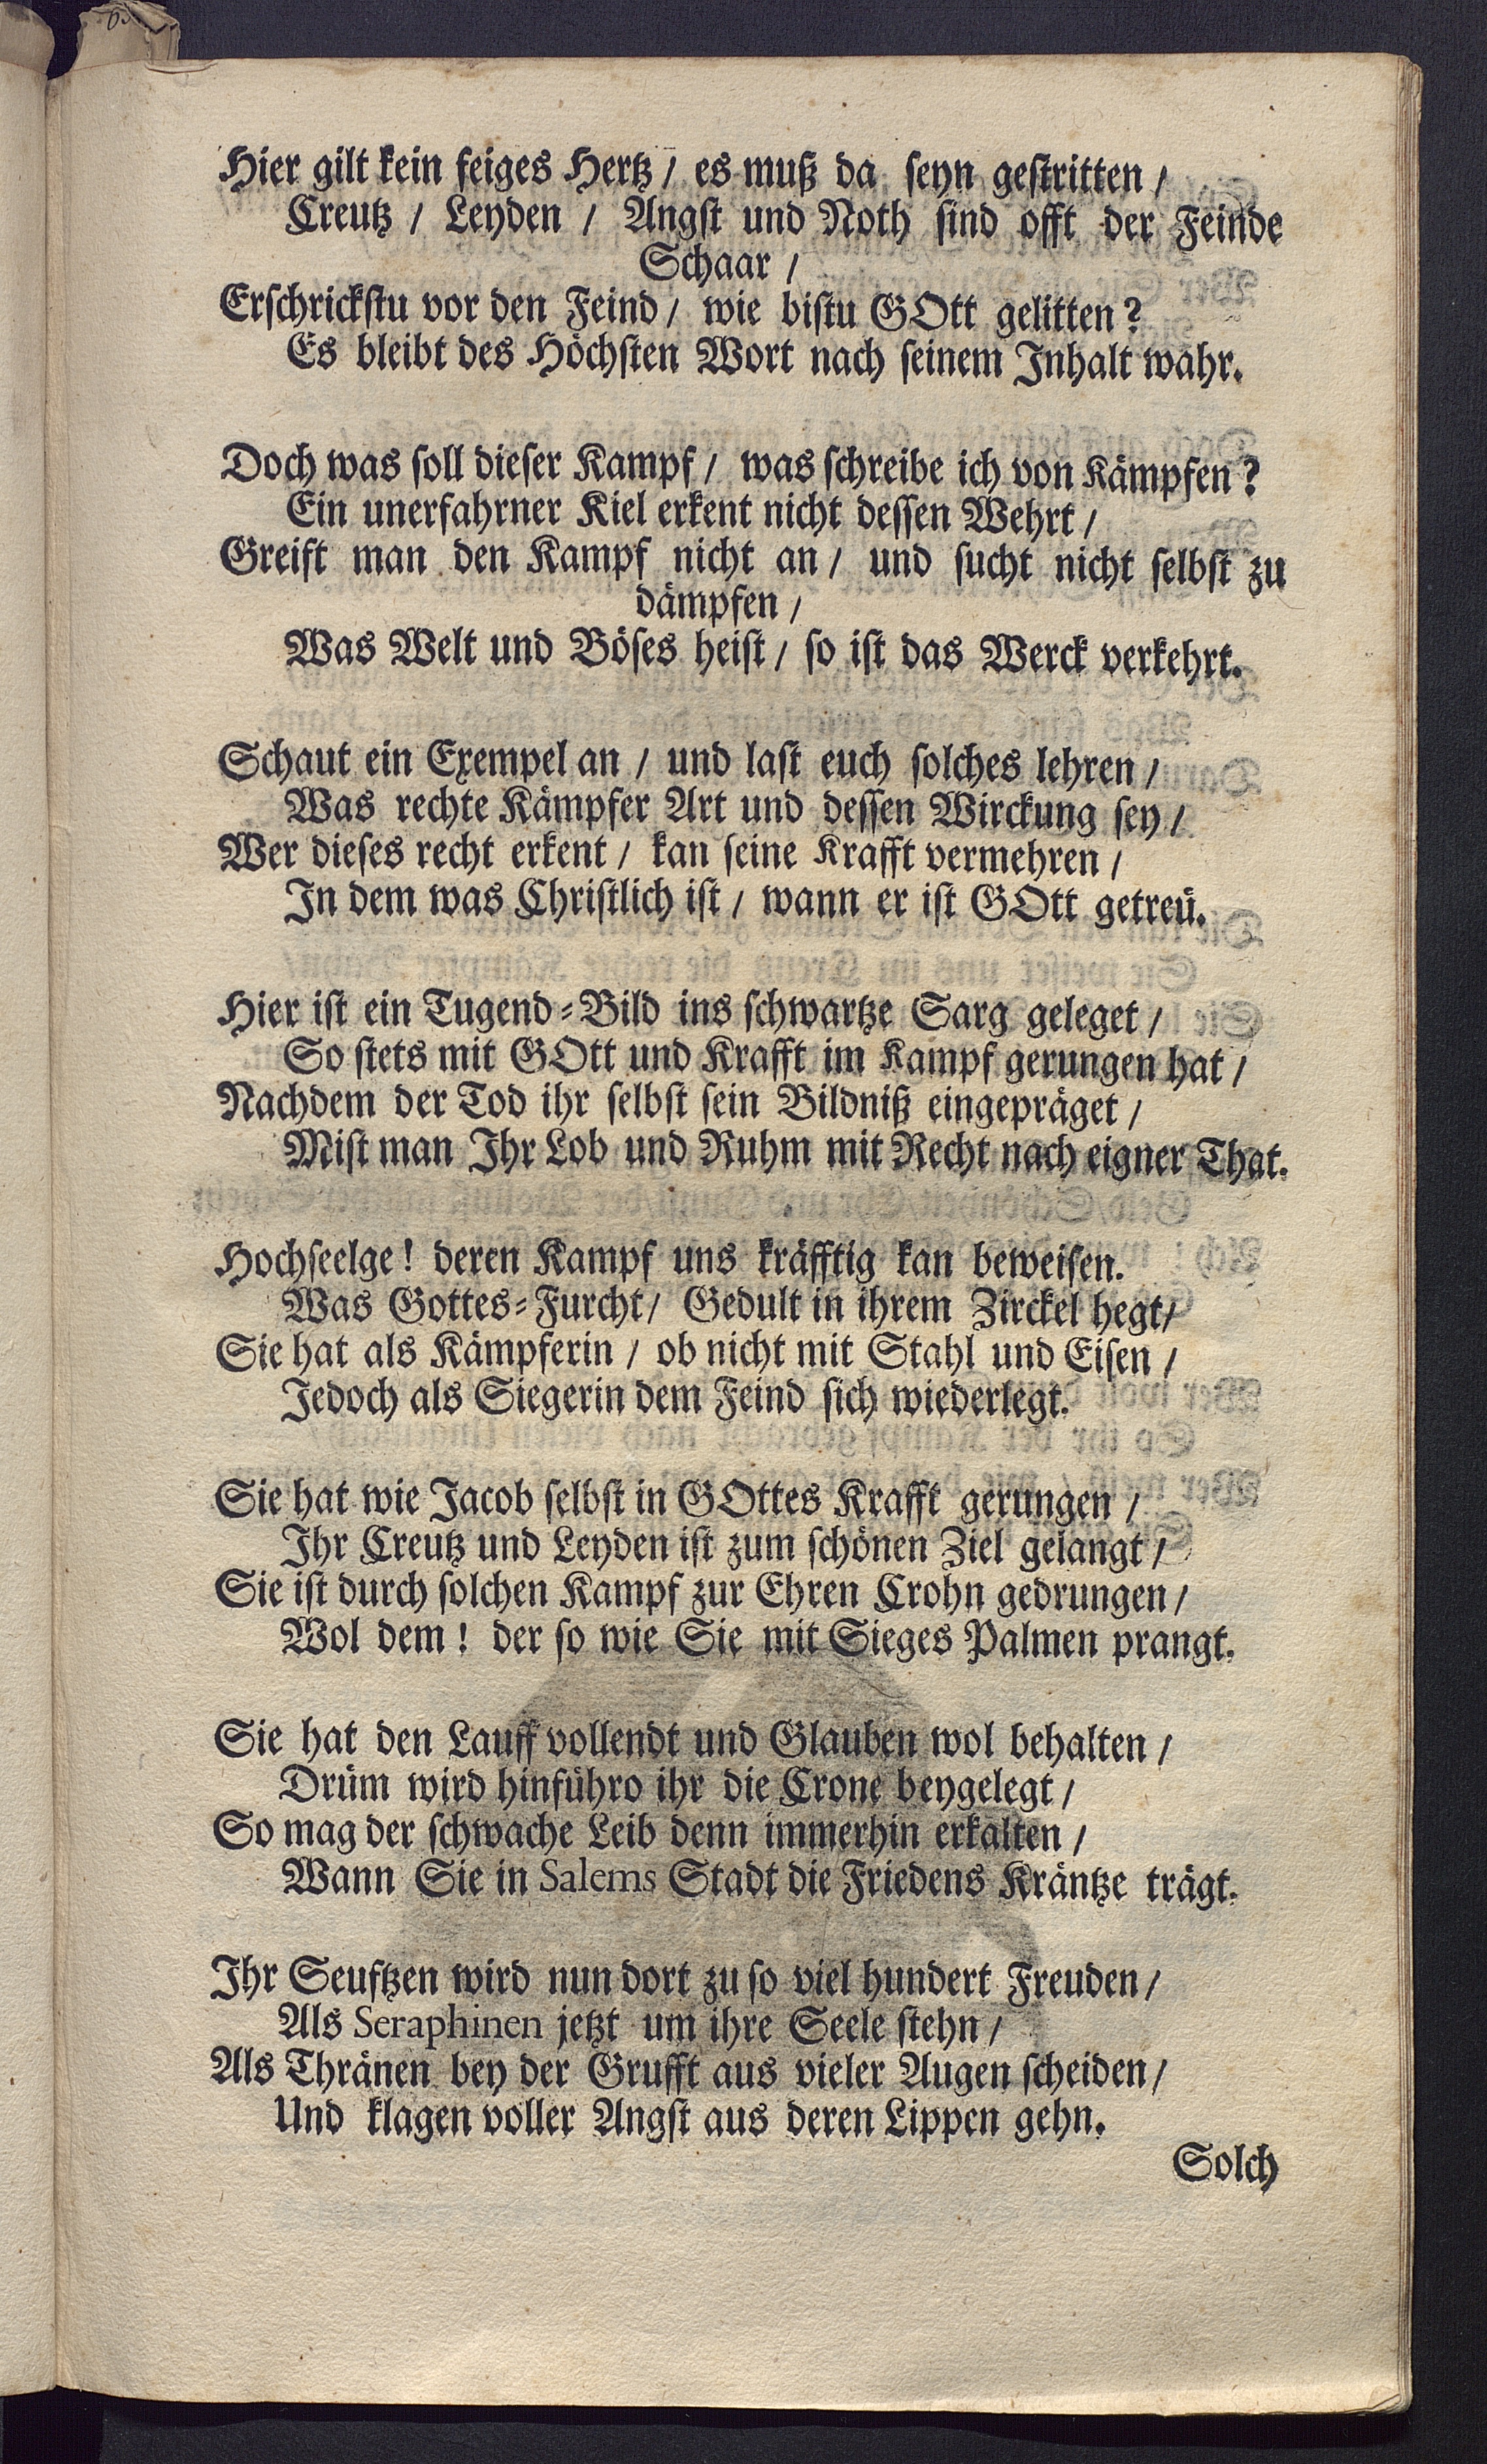 Hier gilt kein feiges Hertz / es muß da seyn gestritten /
Creutz / Leyden / Angst und Noth sind offt der Feinde
Schaar /
Erschrickstu vor den Feind / wie bistu GOtt gelitten?
Es bleibt des Höchsten Wort nach seinem Inhalt wahr.
Doch was soll dieser Kampf / was schreibe ich von Kämpfen?
Ein unerfahrner Kiel erkent nicht dessen Wehrt /
Greift man den Kampf nicht an / und sucht nicht selbst zu
dämpfen /
Was Welt und Böses heist / so ist das Werck verkehrt.
Schaut ein Exempel an / und last euch solches lehren /
Was rechte Kämpfer Art und dessen Wirckung sey /
Wer dieses recht erkent / kan seine Krafft vermehren /
In dem was Christlich ist / wann er ist GOtt getreü.
Hier ist ein Tugend=Bild ins schwartze Sarg geleget /
So stets mit GOtt und Krafft im Kampf gerungen hat /
Nachdem der Tod ihr selbst sein Bildniß eingepräget /
Mist man Ihr Lob und Ruhm mit Recht nach eigner That.
Hochseelge! deren Kampf uns kräfftig kan beweisen.
Was Gottes=Furcht / Gedult in ihrem Zirckel hegt /
Sie hat als Kämpferin / ob nicht mit Stahl und Eisen /
Jedoch als Siegerin dem Feind sich wiederlegt.
Sie hat wie Jacob selbst in GOttes Krafft gerungen /
Ihr Creutz und Leyden ist zum schönen Ziel gelangt /
Sie ist durch solchen Kampf zur Ehren Crohn gedrungen /
Wol dem! der so wie Sie mit Sieges Palmen prangt.
Sie hat den Lauff vollendt und Glauben wol behalten /
Drüm wird hinführo ihr die Crone beygelegt /
So mag der schwache Leib denn immerhin erkalten /
Wann Sie in Salems Stadt die Friedens Kräntze trägt.
Ihr Seuftzen wird nun dort zu so viel hundert Freuden /
Als Seraphinen jetzt um ihre Seele stehn /
Als Thränen bey der Grufft aus vieler Augen scheiden /
Und klagen voller Angst aus deren Lippen gehn.
Solch